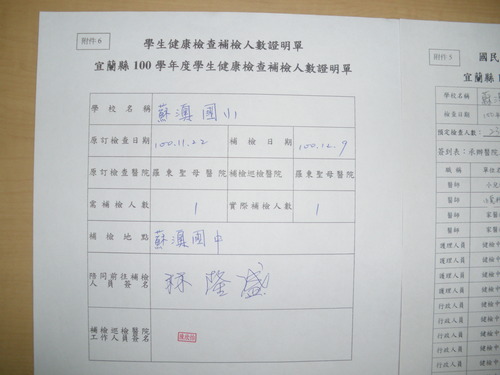 附件6
學生健康檢查補檢人數證明單
宜蘭縣100學年度學生健康檢查補檢人數證明單
學校名稱 蘇澳國小
原訂檢查日期 100.11.22 補檢日期 100.12.9
原訂檢查醫院 羅東聖母醫院 補檢巡檢醫院 羅東聖母醫院
需補檢人數 1 實際補檢人數 1
補檢地點 蘇澳國中
陪同前往補檢
人員簽名 林隆盛
補檢巡檢醫院
工作人員簽名
附件5
國民
宜蘭
學校名稱 蘇澳
檢查日期 100年
預定檢查人數:
簽到表:承辦醫院
職稱 單位名
醫師
醫師
醫師 家醫
醫師 家醫
護理人員 健檢中
護理人員 健檢中
護理人員 健檢中
護理人員 健檢中
行政人員 健檢中
行政人員 健檢中
行政人員 健檢中
行政人員 健檢中